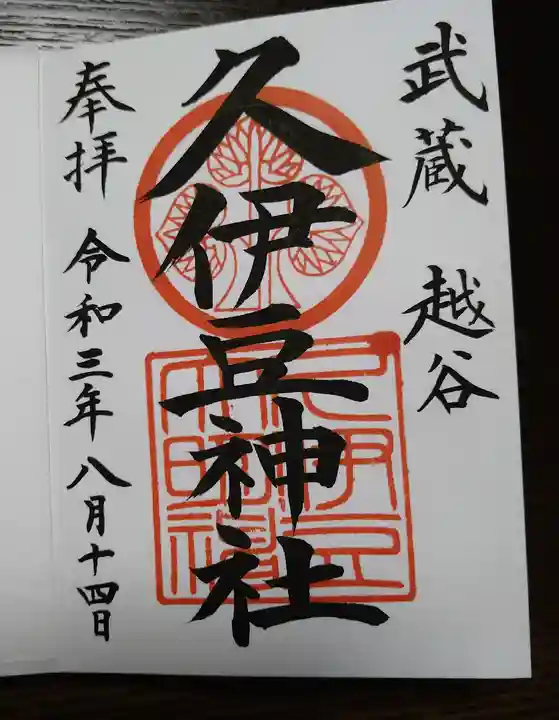 武蔵 越谷
久伊豆神社
奉拝 令和三年 八月十四日